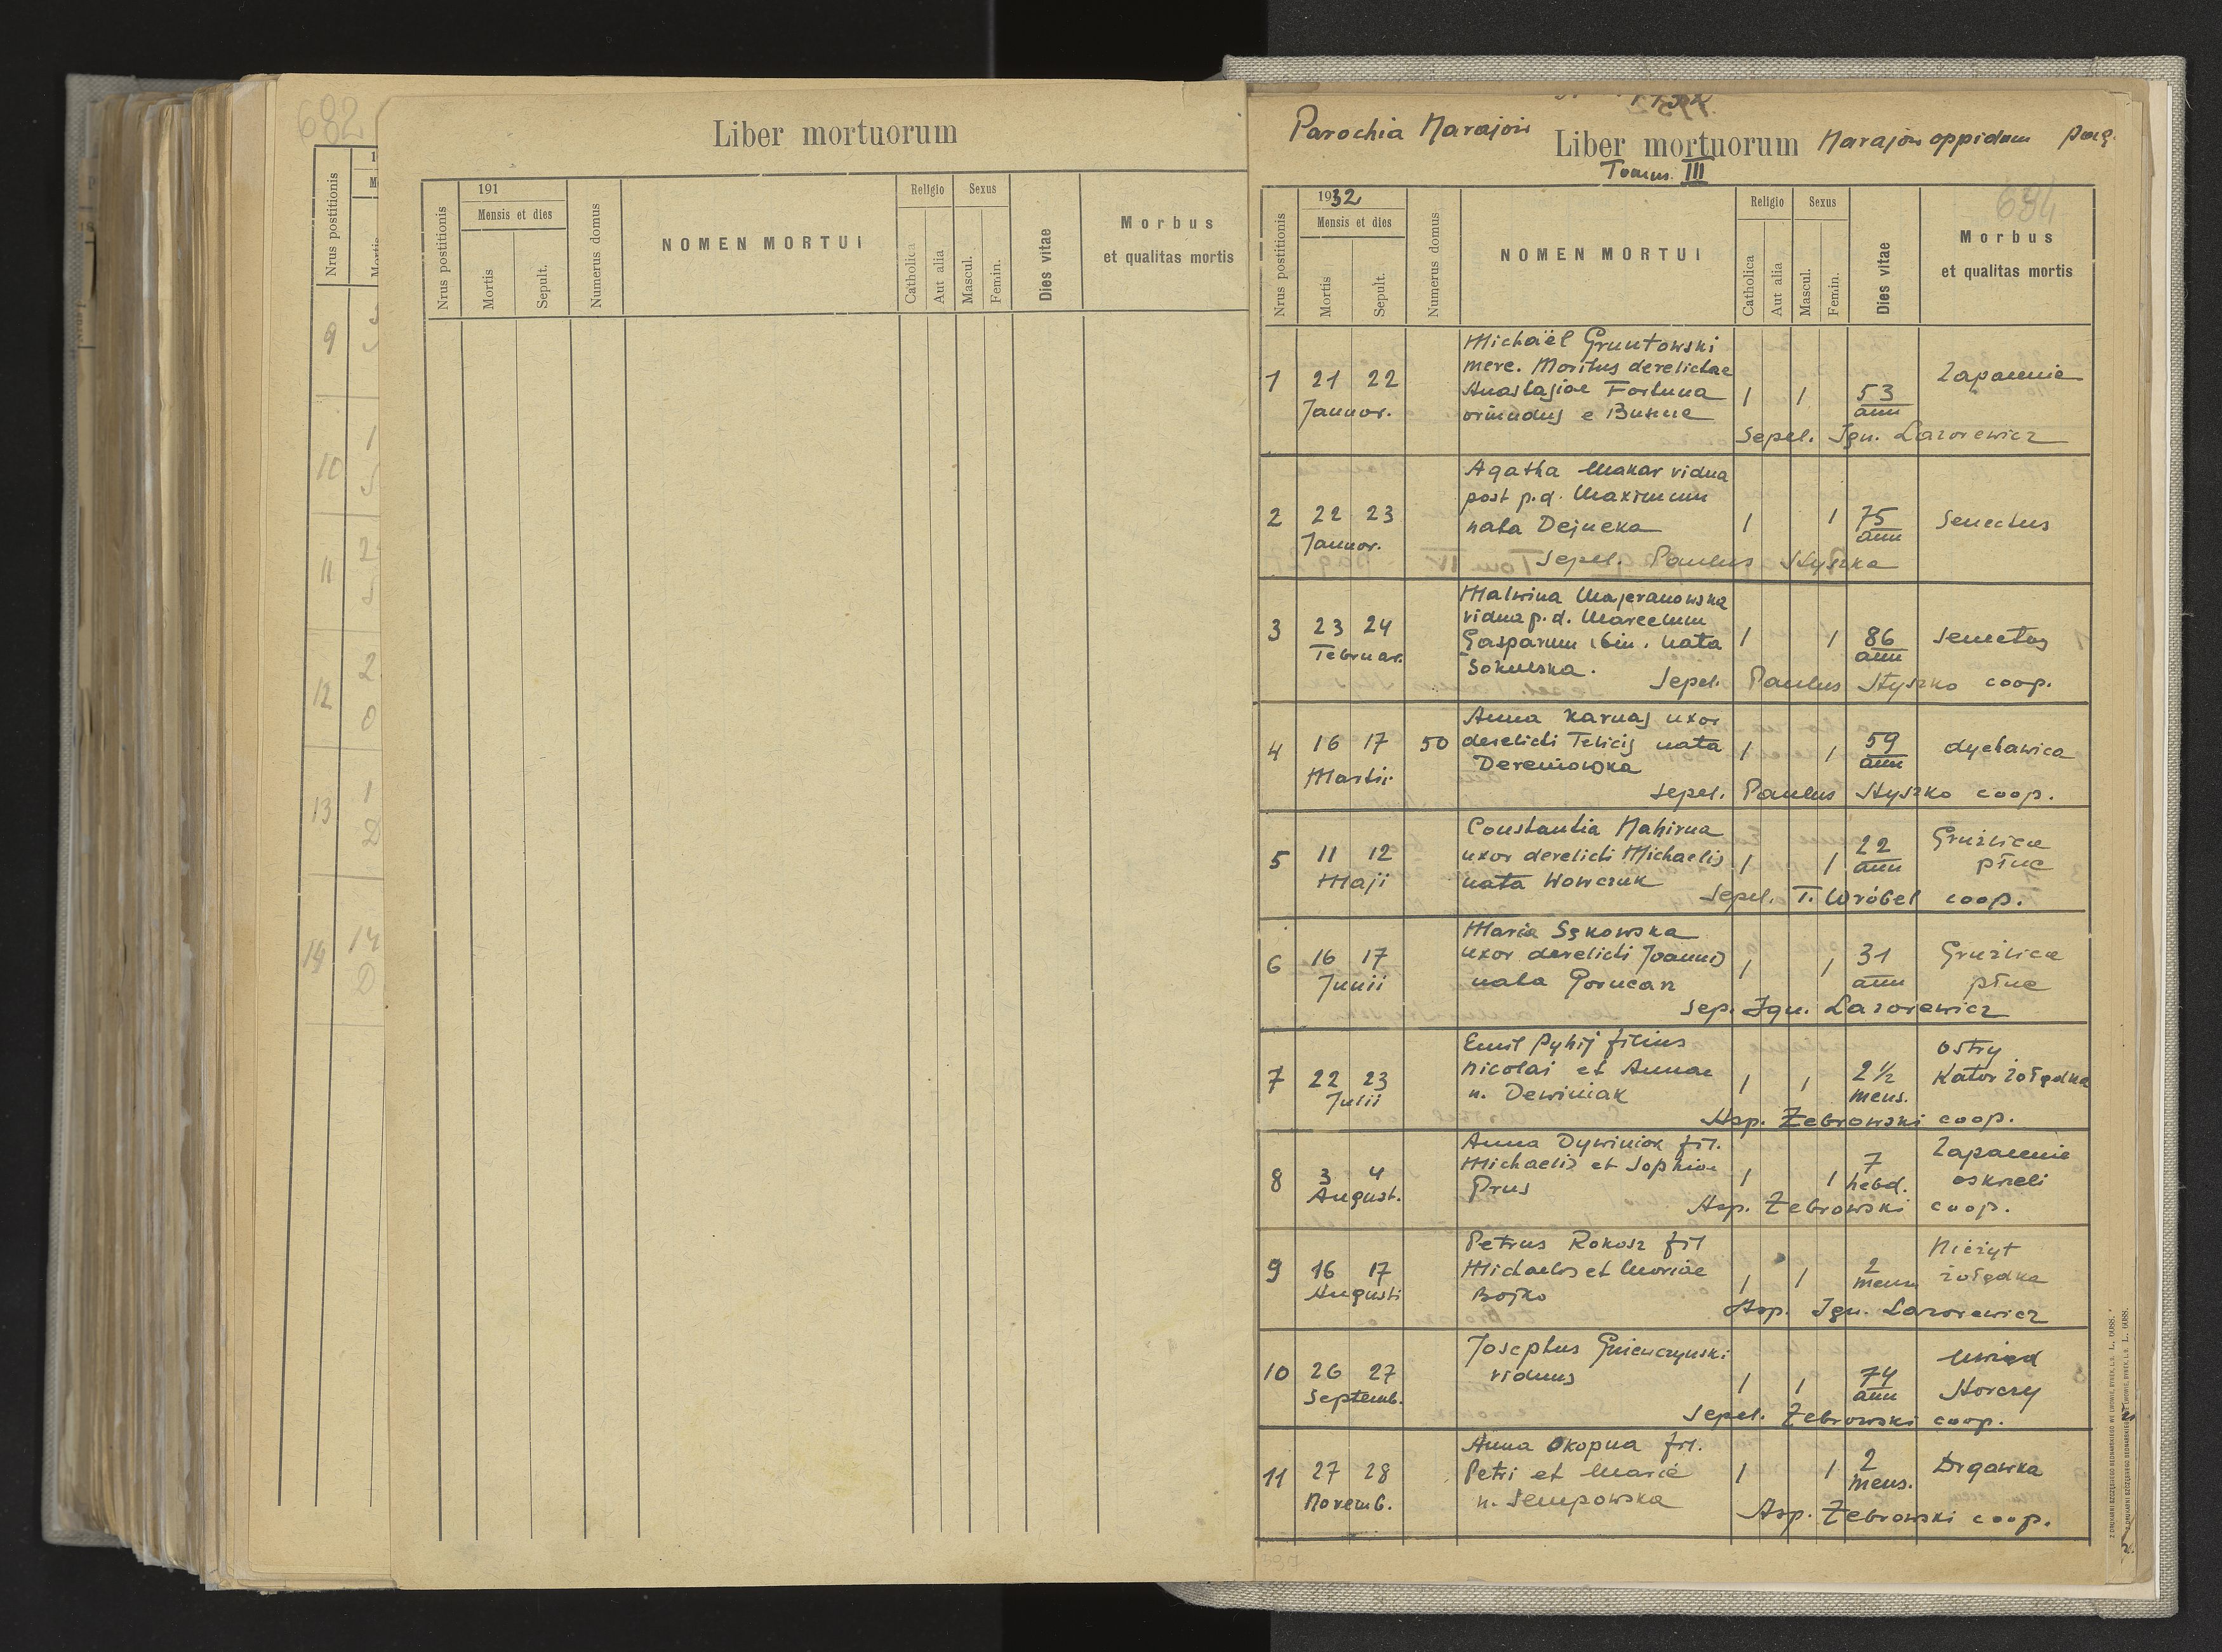 682
Nrus postitionis
9
10
11
12
13
14
Liber mortuorum
Nrus postitionis
191
Mensis et dies
Mortis
Sepult.
Numerus domus
NOMEN MORTUI
Religio
Catholica
Aut alia
Sexus
Mascul.
Femin.
Dies vitae
Morbus
et qualitas mortis
Parochia Narajow
Liber mortuorum
Narajow oppidum pag.
Tomus III
634
Nrus postitionis
1932
Mensis et dies
Mortis
Sepult.
Numerus domus
NOMEN MORTUI
Religio
Catholica
Aut alia
Sexus
Mascul.
Femin.
Dies vitae
Morbus
et qualitas mortis
Michaël Gruntowski
merc. Maritus derelictae
1 21 22 Anastasiae Fortuna 1 1 53 Zapalenie
Januar. oriundus e ann
Sepel. Ign. Lazorewicz
Agatha Makar vidua
post p.d. Maximum
2 22 23 nata Dejneka 1 1 75 Senectus
Januar. ann
Sepel. Paulus Styszko
Malwina Majeranowska
vidua p.d. Marcellum
3 23 24 Gasparum bin. nata 1 1 86 Senectus
Februar. Sokulska. ann
Sepel. Paulus Styszko coop.
Anna Karnas uxor
4 16 17 50 derelicti Felicis nata 1 1 59 dychawica
Martii Dereniowska ann
Sepel. Paulus Styszko coop.
Constantia Nahirna
5 11 12 uxor derelicti Michaelis 1 1 22 Gruźlica
Maji nata Wowczuk ann płuc
Sepel. T. Wróbel coop.
Maria Sękowska
6 16 17 uxor derelicti Joannis 1 1 31 Gruźlica
Junii nata Gorucan ann płuc
Sep. Ign. Lazorewicz
Emil Pyhij filius ostry
7 22 23 Nicolai et Annae 1 1 2½ Katar żołądka
Julii n. Dewiniak mens.
Asp. Żebrowski coop.
Anna Dywiniak fil.
8 3 4 Michaelis et Sophiae 1 1 7 Zapalenie
August. Prus hebd. oskrzeli
Asp. Żebrowski coop.
Petrus Rokosz fil Nieżyt
9 16 17 Michaelis et Mariae 1 1 2 żołądka
Augusti Bojko mens
Asp. Ign. Lazorewicz
Josephus Gnienczynski Uwiąd
10 26 27 viduus 1 1 74 Starczy
Septemb. ann
Sepel. Żebrowski coop.
Anna Okopna fil.
11 27 28 Petri et Marie 1 1 2 Drgawka
Novemb. n. Sempowska mens.
Asp. Żebrowski coop.